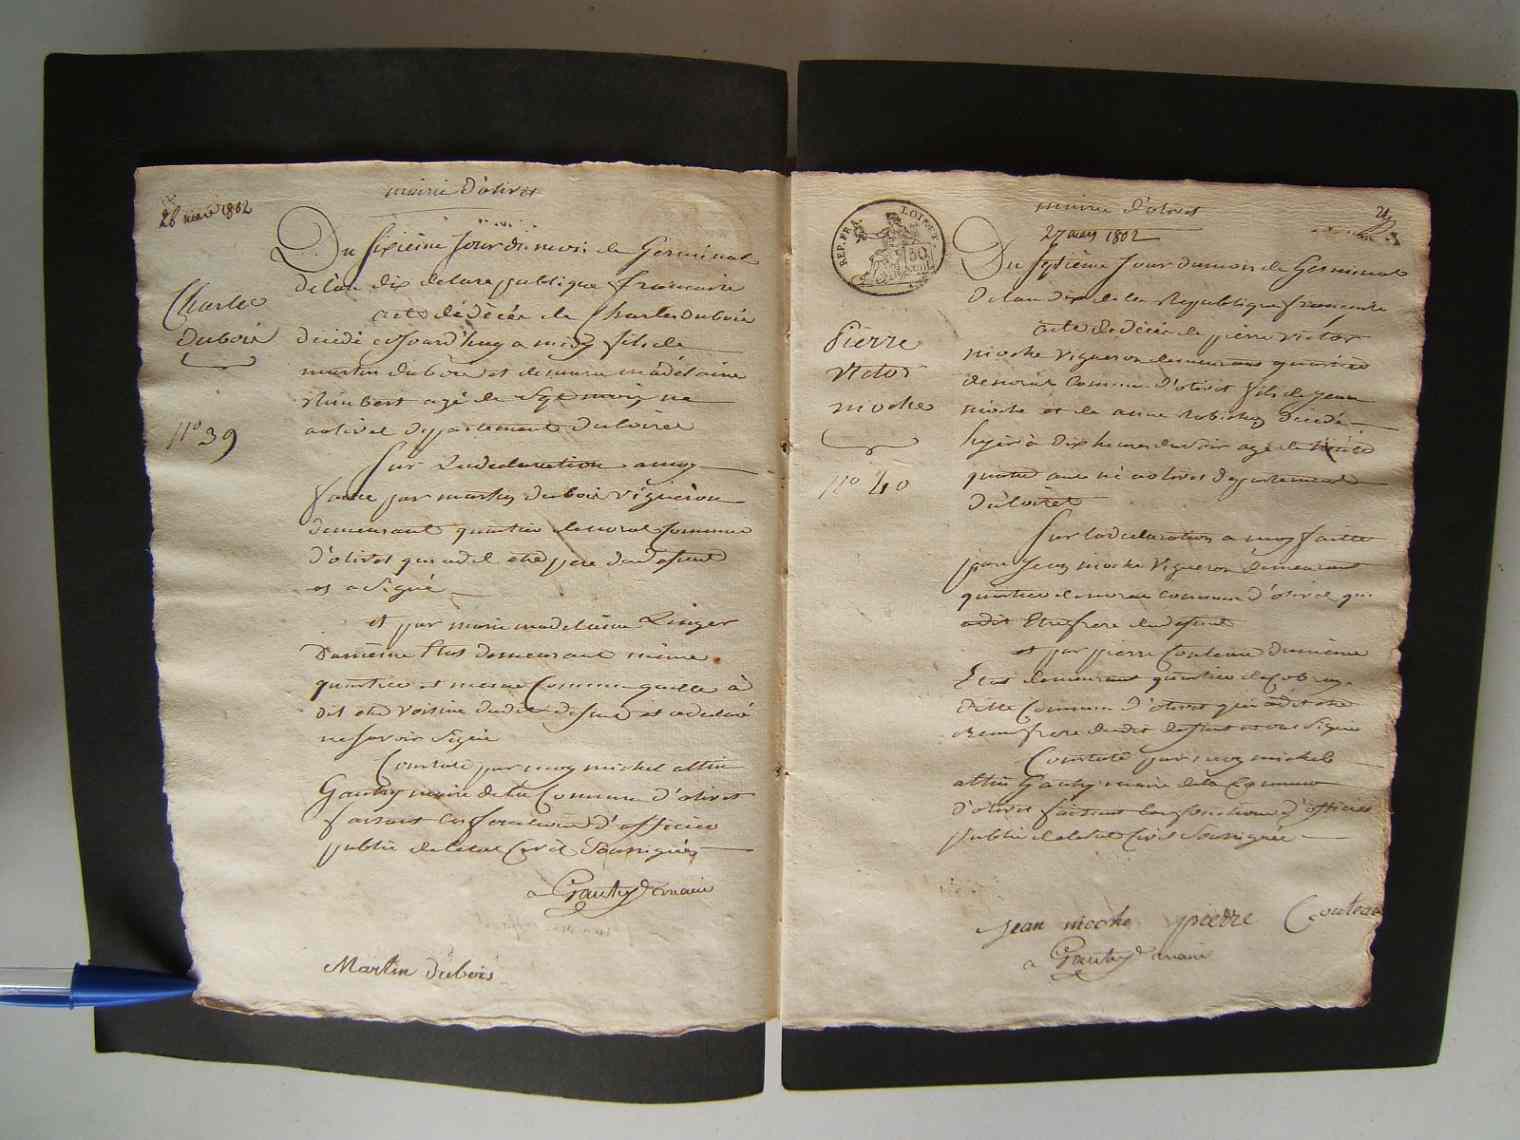 mairie d'olivet
26 mars 1802
Du Sixième Jour du mois de Germinal
de l'an dix de la republique francaise
acte de décès de Charles dubois
Charles
dubois
décédé aujourd'huy a midy fils de
martin dubois et de marie mádélaine
Rimbert agé de
N° 39
a olivet département du loiret
Sur la declaration a moy
faitte par martin dubois vigneron
demeurant quartier de commune
d'olivet qui a dit etre pere du defunt
et a Signé
et par marie madelaine Linger
du même Etat demeurant même
quartier et même Commune quelle à
dit etre voisine dudit defunt et a declaré
ne savoir Signer
Constaté par moy michel
Gauthy maire de la Commune d'olivet
faisant les fonctions d'officier
public de letat Civil Soussigné
Gauthy maire
Martin dubois
REP. FRA.
mairie d'olivet
27 mars 1802
Du Septième Jour du mois de Germinal
De l'an dix de la Republique francaise
acte de décès de pierre victor
Pierre
victor
nioche
nioche vigneron demeurant quartier
de commune d'olivet fils de jean
nioche et de anne décédé
hyer à dix heures du soir agé de
N° 40
quatre ans né a olivet departement
du loiret
Sur la declaration a moy faitte
par Jean nioche vigneron demeurant
quartier commune d'olivet qui
a dit Etre frere du defunt
et par pierre Couteau du même
Etat demeurant quartier de
ditte Commune d'olivet qui a dit etre
Beau frere dudit defunt et ont Signé
Constaté par moy michel
Gauthy maire de la Commune
d'olivet faisant les fonctions d'officier
public de letat Civil Soussigné
jean nioche pierre Couteau
Gauthy maire